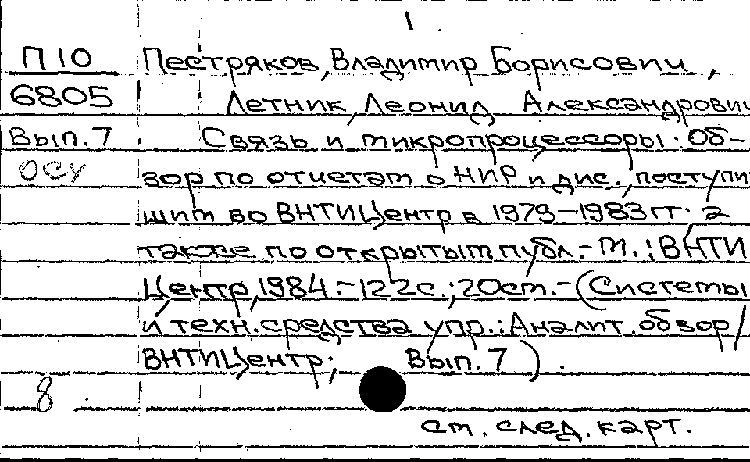 1
П10 Пестряков, Владимир Борисович,
6805 Летник, Леонид Александрович
Вып.7 Связь и микропроцессоры: Об-
ОСУ зор по отчетам о НИР и дис., поступи
шим во ВНТИЦентр в 1979-1983 гг. а
также по открытым публ.- М.: ВНТИ
Центр, 1984.-122с.; 20см.-(Системы
и техн. средства упр.: Аналит. обзор/
ВНТИЦентр; Вып. 7).
8
см. след. карт.